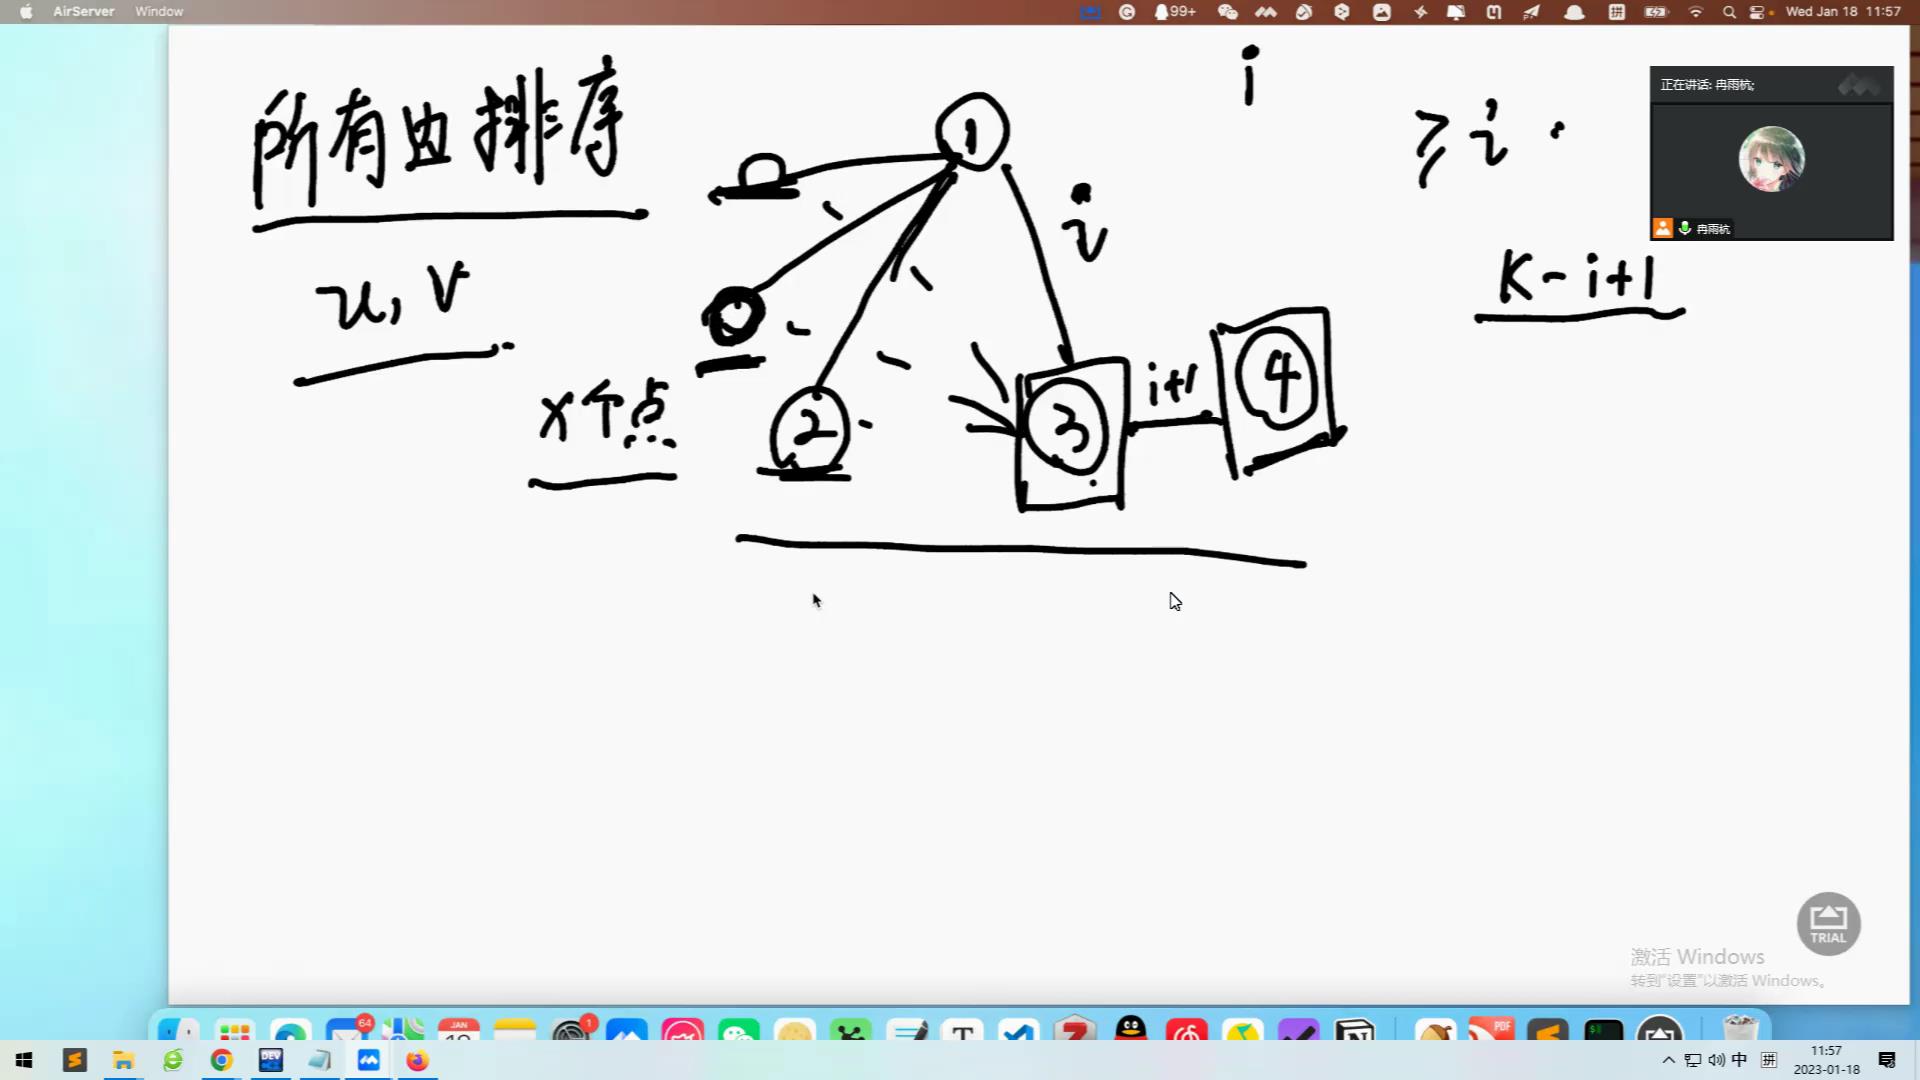 AirServer Window
99+
Wed Jan 18 11:57
所有边排序
u, v
x个点
1
2
3
4
i
i+1
i
≥ i
K - i + 1
正在讲话: 冉雨杭;
冉雨杭
TRIAL
激活 Windows
转到“设置”以激活 Windows。
64
JAN
1
PDF
DEV
中
拼
11:57
2023-01-18